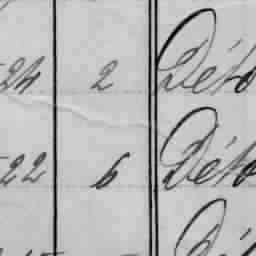 24 2 Déto
22 6 Déto